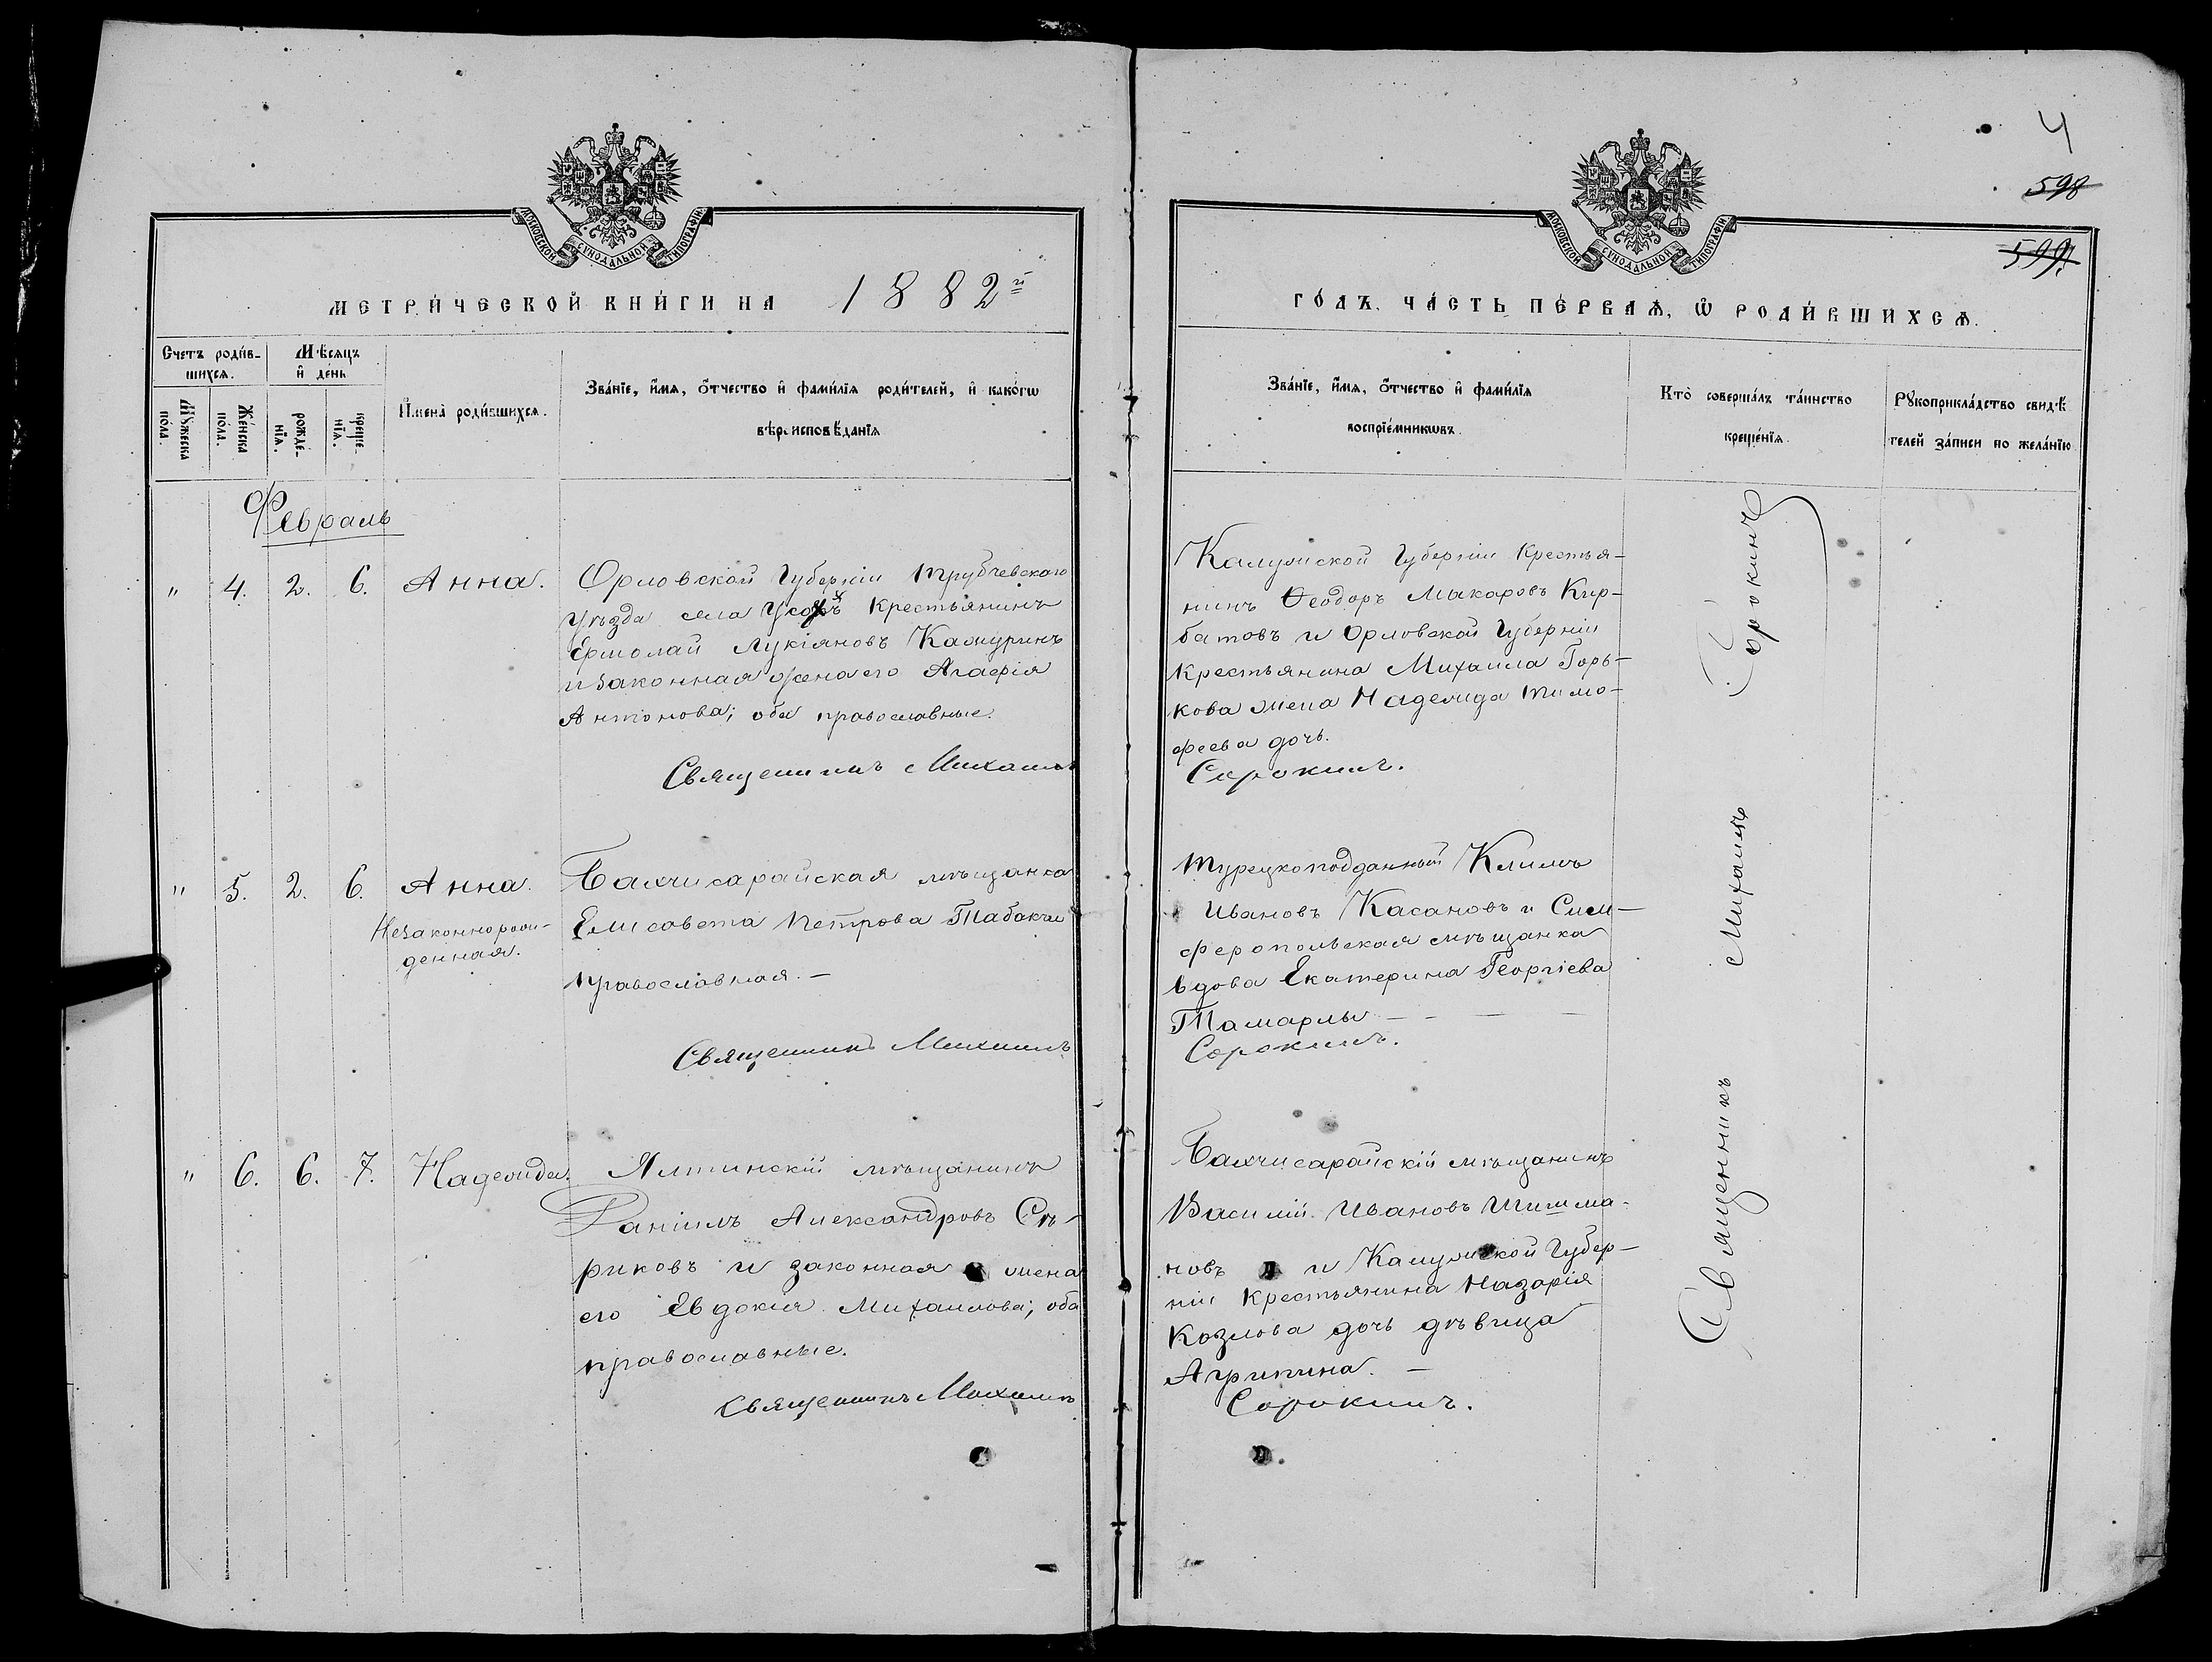 4
598
599
МОСКОВСКОЙ СѴНОДАЛЬНОЙ ТИПОГРАФІИ
МОСКОВСКОЙ СѴНОДАЛЬНОЙ ТИПОГРАФІИ
МЕТРИ́ЧЕСКОЙ КНИ́ГИ НА 1882й
ГО́ДЪ. ЧА́СТЬ ПЕ́РВАѦ, Ѿ РОДИ́ВШИХСѦ.
Счетъ роди́в-
шихсѧ.
Мꙋ́жеска
по́ла.
Же́нска
по́ла.
Мѣ́сяцъ
и҆ де́нь
рожде́-
нїѧ.
креще́-
нїѧ.
И҆мена̀ роди́вшихсѧ.
Зва́нїе, и҆́мѧ, ѻ҆́тчество и҆ фами́лїѧ роди́телей, и҆ како́гѡ
вѣроисповѣ́данїѧ
Зва́нїе, и҆́мѧ, ѻ҆́тчество и҆ фами́лїѧ
воспрїе́мникѡвъ.
Кто̀ соверша́лъ та́инство
креще́нїѧ.
Рꙋкоприкла́дство свидѣ́-
телей за́писи по жела́нїю
Февраль
" 4. 2. 6. Анна.
Орловской Губерніи Трубчевскаго
уѣзда села Усохъ Крестьянинъ
Ермолай Лукіяновъ Кашуринъ
и законная жена его Агафія
Антонова; оба православные.
Священникъ Михаилъ
Калужской Губерніи Крестья-
нинъ Ѳеодоръ Макаровъ Кур-
батовъ и Орловской Губерніи
Крестьянина Михаила Горь-
кова жена Надежда Тимо-
феева дочь.
Сорокинъ.
" 5. 2. 6. Анна.
Незаконнорож-
денная.
Бахчисарайская мѣщанка
Елисавета Петрова Табакчи
православная. —
Священникъ Михаилъ
Турецкоподданный Климъ
Ивановъ Касановъ и Сим-
феропольская мѣщанка
вдова Екатерина Георгіева
Тамарлы - - — —
Сорокинъ.
" 6. 6. 7. Надежда.
Ялтинскій мѣщанинъ
Даніилъ Александровъ Сѣ-
риковъ и законная жена
его Евдокія Михаилова; оба
православные.
Священникъ Михаилъ
Бахчисарайскій мѣщанинъ
Василій Ивановъ Шишма-
новъ и Калужской Губер-
ніи Крестьянина Назарія
Козлова дочь дѣвица
Агрипина. —
Сорокинъ.
Священникъ Михаилъ Сорокинъ